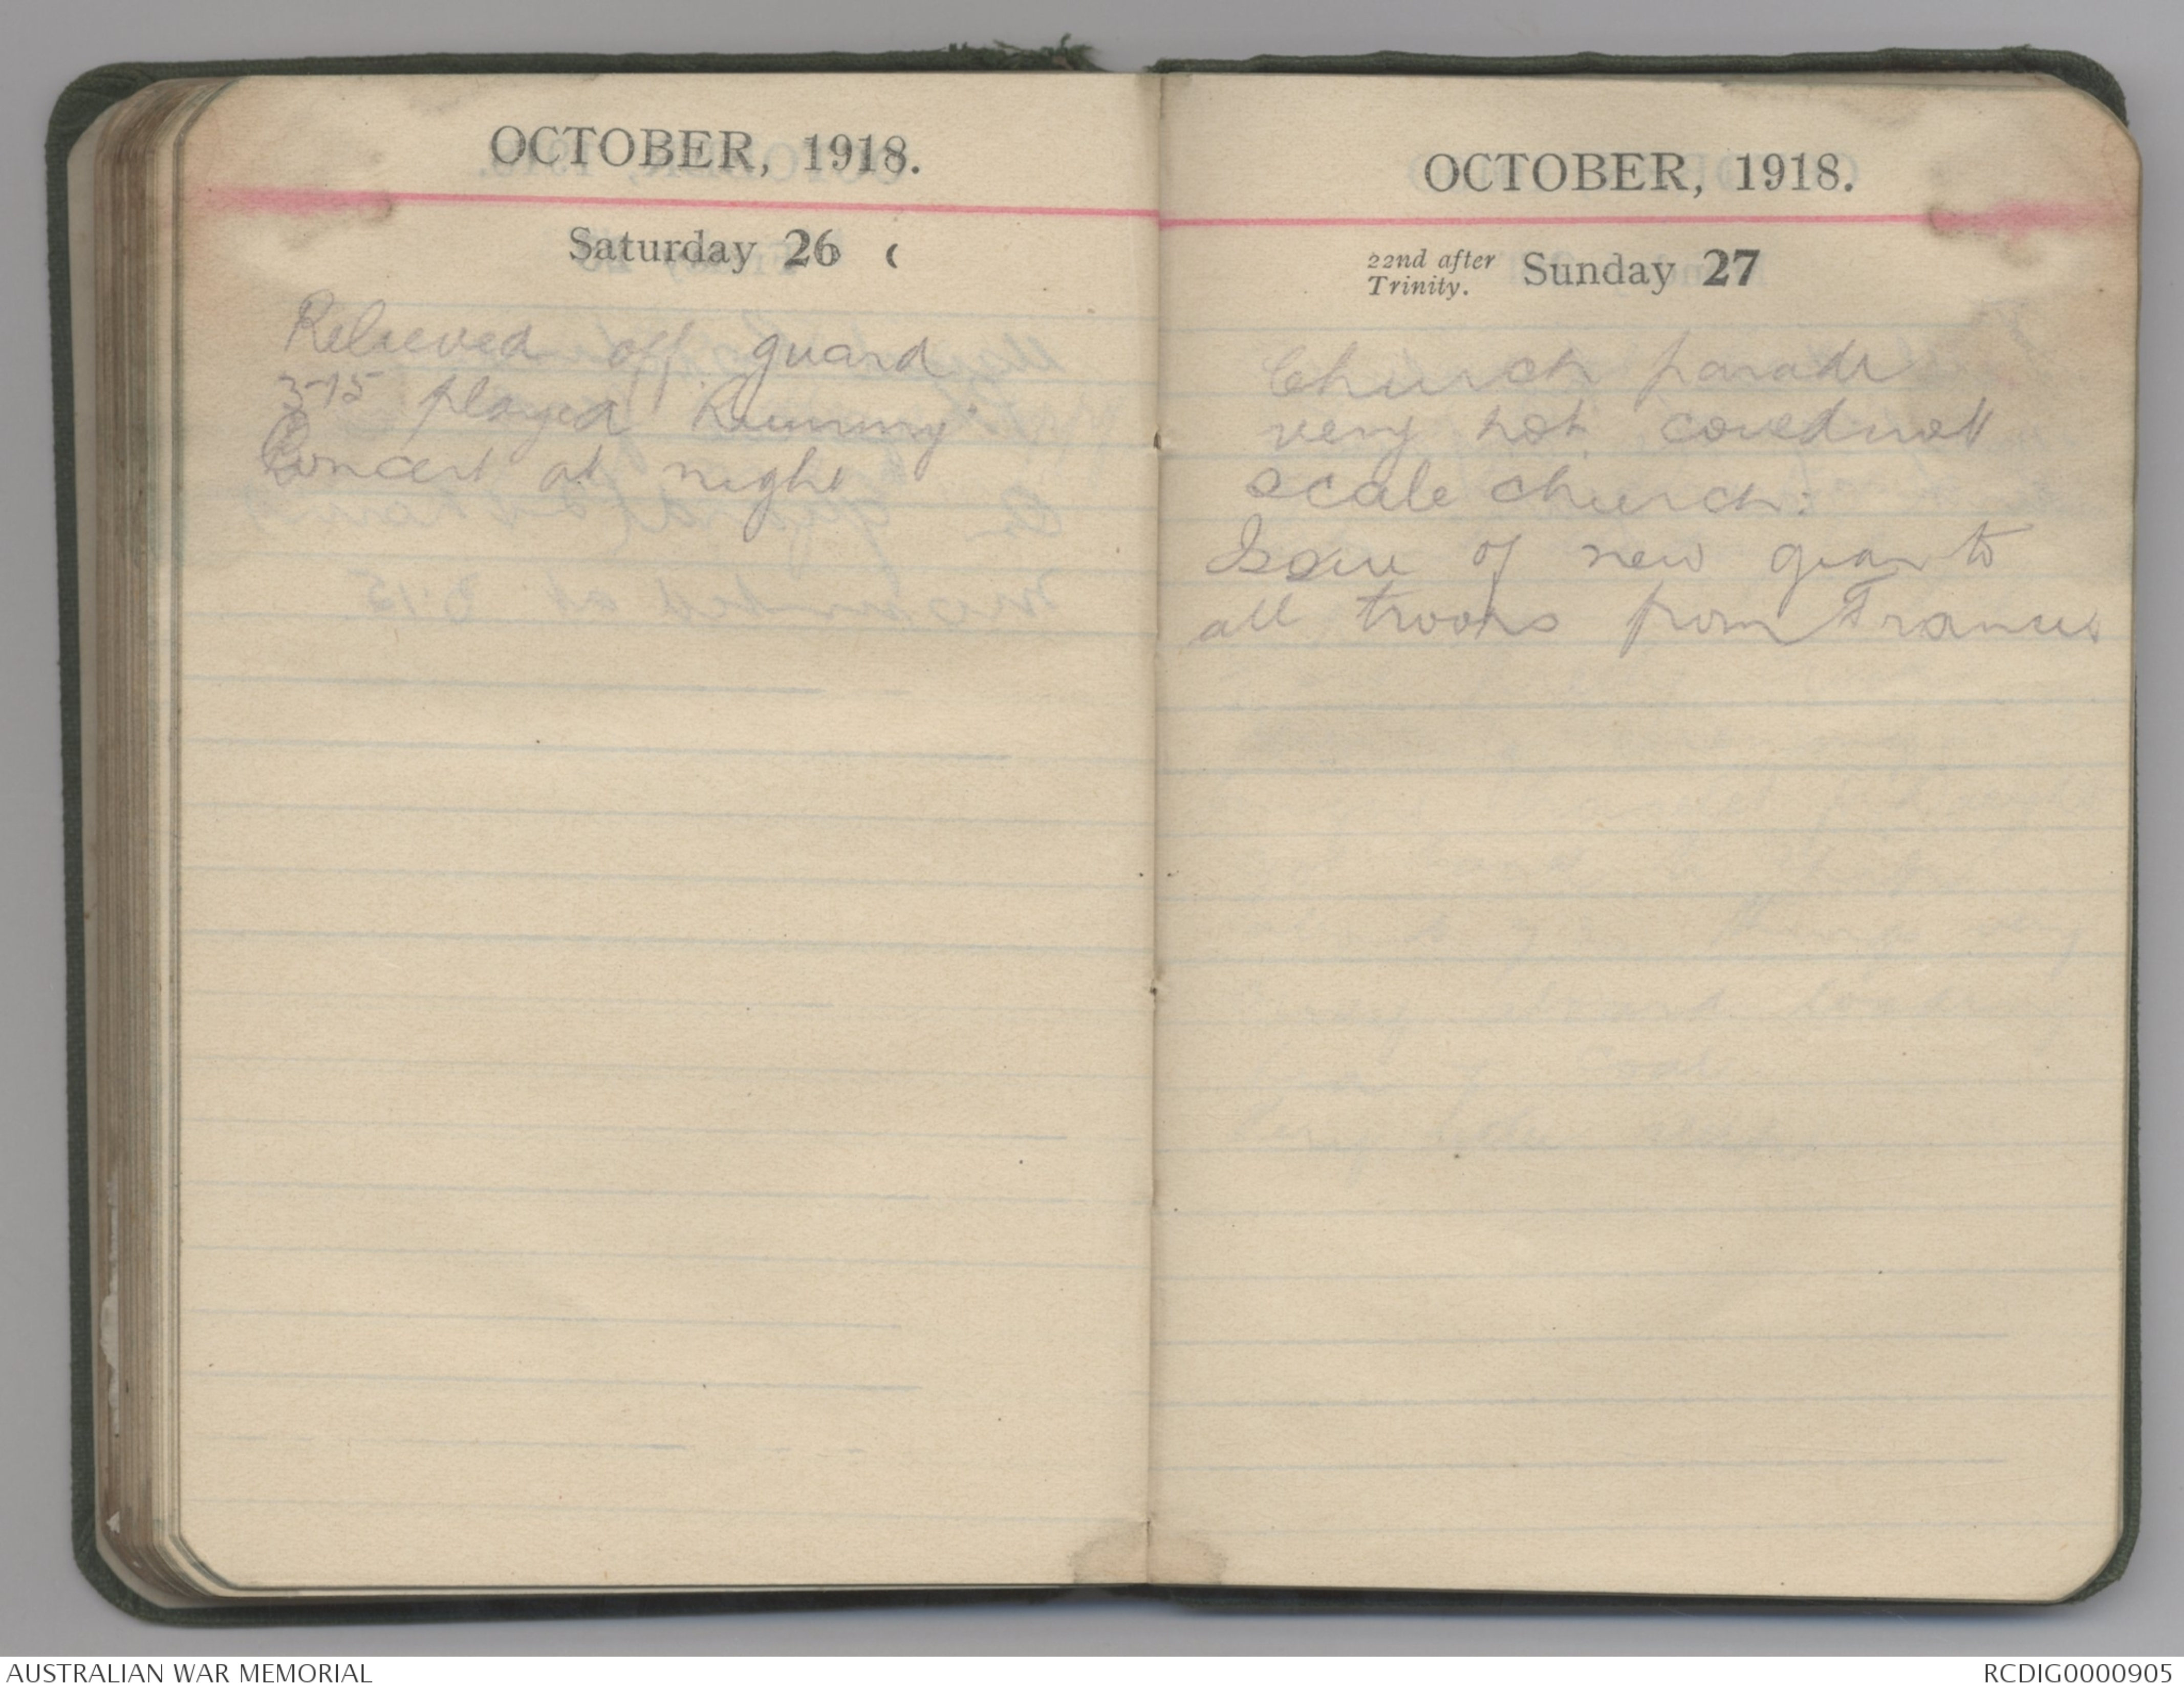 OCTOBER, 1918.
Saturday 26
Relieved off guard
3-15 played Rummy
Concert at night
OCTOBER, 1918.
22nd after
Trinity.
Sunday 27
Church parade
very hot
scale church:
Issue of new gear to
all troops from France
AUSTRALIAN WAR MEMORIAL
RCDIG0000905